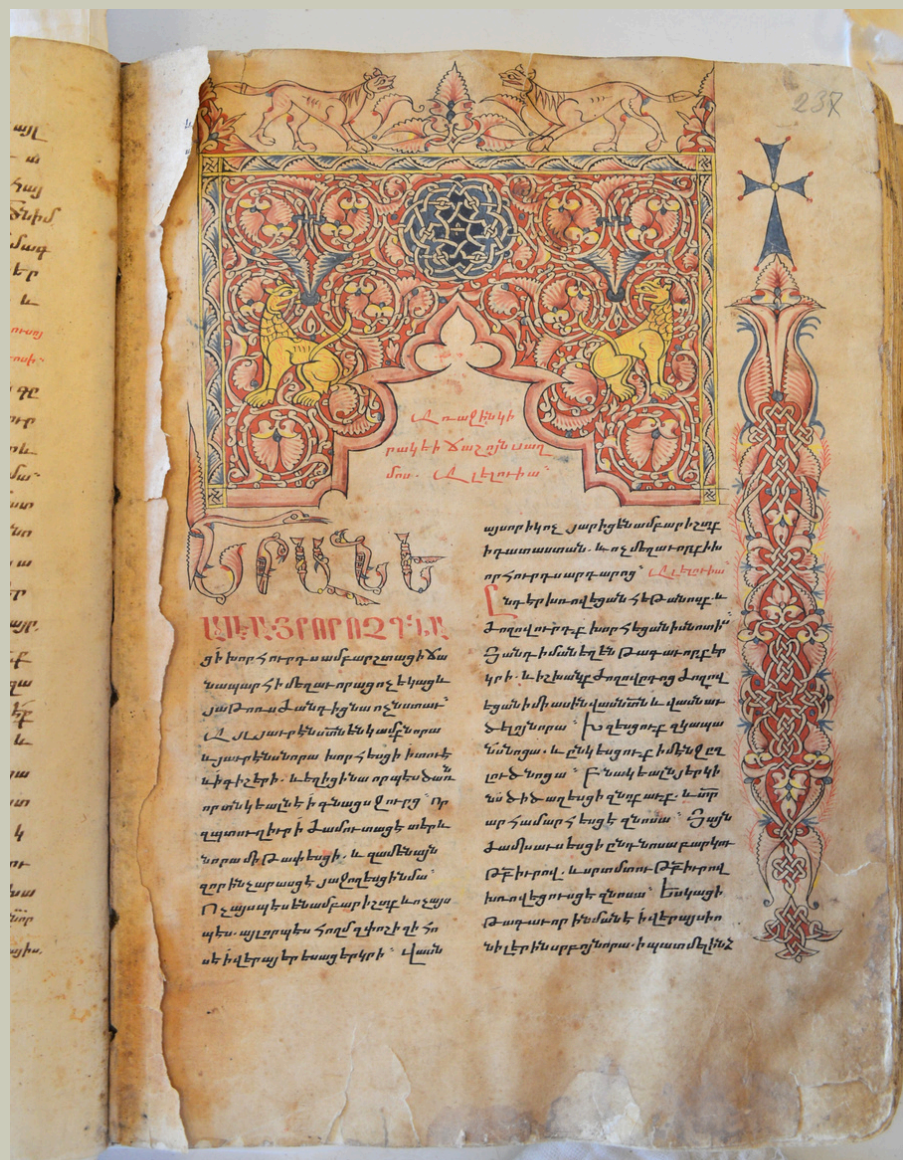 Առաջին կի
րակէի ճաշոյն սաղ
մոս. Ալէլուիա՝
ԵՐԱՆԵ
ԱԼ Է ԱՅՐ ՈՐ ՈՉ ԳՆԱ
ց ի խորհուրդս ամբարշտաց ի ճա
նապարհի մեղաւորաց ոչ եկաց և
յաթոռս ժանդից նա ոչ նստաւ՝
Այլ յաւրէնս տն են կամք նորա
և յաւրէնս նորա խորհեսցի ի տուէ
և ի գիշերի. և եղիցի նա որպէս ծառ
որ տնկեալ է ի գնացս ջուրց՝ որ
զպտուղ իւր ի ժամու տացէ տերև
նորա մի թափեսցի. և զամենայն
զոր ինչ արասցէ յաջողեսցի նմա՝
Ոչ այսպէս են ամբարիշտք և ոչ այս
պէս. այլ որպէս հողմ զփոշի զի հո
սէ ի վերայ երեսաց երկրի՝ վասն
այսորիկ ոչ յարիցեն ամբարիշտք
ի դատաստան. և ոչ մեղաւորք ի խ
որհուրդս արդարոց՝ Ալէլուիա՝
Ընդէր խռովեցան հեթանոսք. և
ժողովուրդք խորհեցան ի սնոտիս
Յանդիման եղեն թագաւորք եր
կրի. և իշխանք ժողովրդոց ժողով
եցան ի միասին վասն տն և վասն աւ
ծելոյ նորա՝ Խզեսցուք զկապա
նս նոցա. և ընկեսցուք ի մէնջ զղ
լուծ նոցա՝ Բնակեալն յերկի
նս ծիծաղեսցի զնոքաւք. և տր
արհամարհեսցէ զնոսա՝ Յայն
ժամ խաւսեսցի ընդ նոսա բարկու
թբ իւրով. և սրտմտութբ իւրով
խռովեցուսցէ զնոսա՝ Ես կացի
թագաւոր ի նմանէ ի վերայ սիո
նի լերին սրբոյ նորա. ի պատմել ինձ